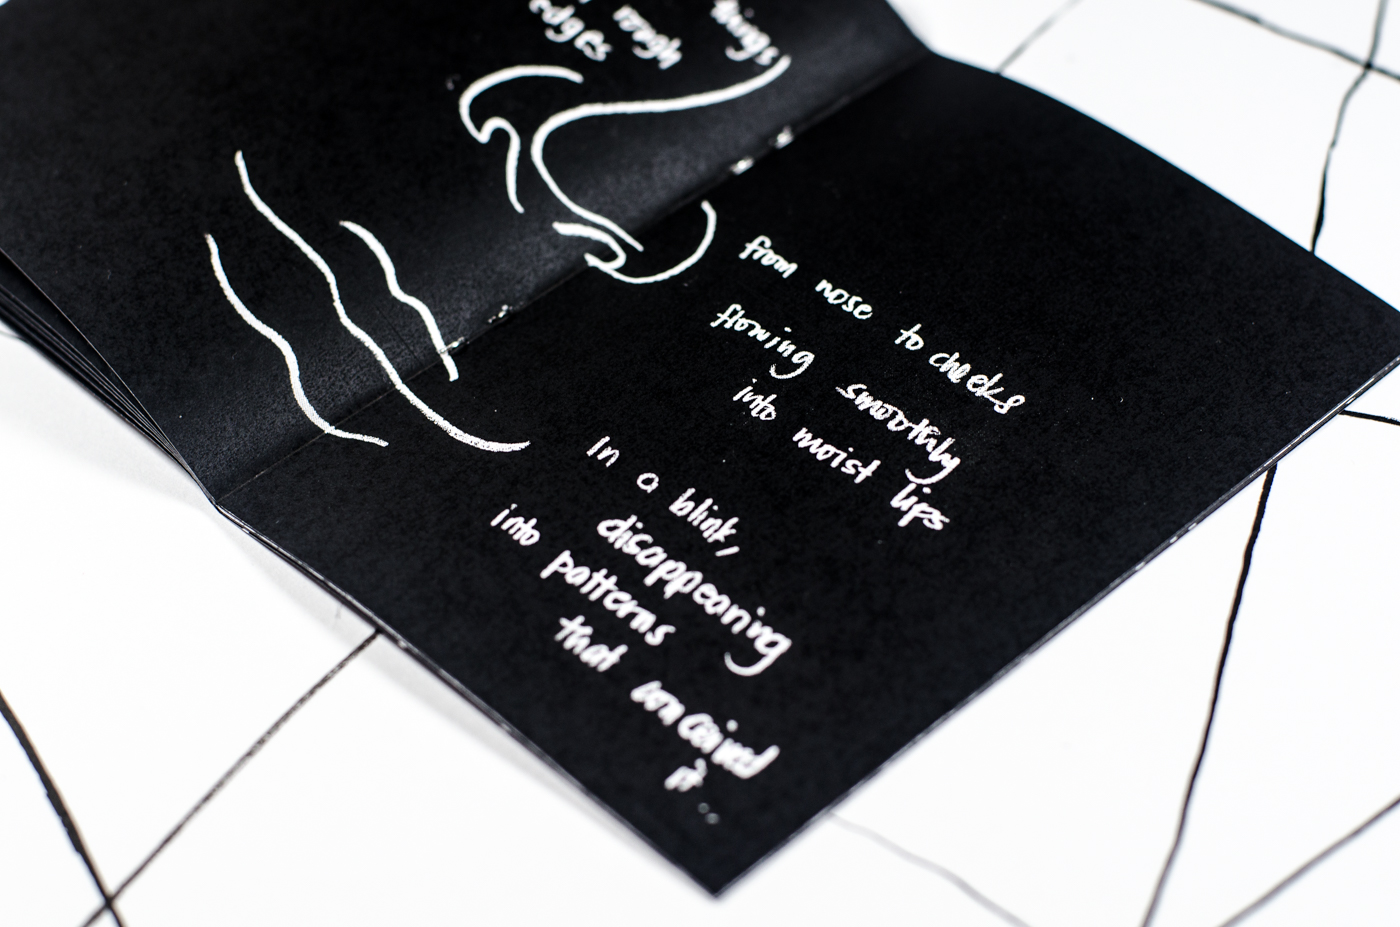 things
rough
edges
from nose to cheeks
flowing smoothly
into moist lips
In a blink,
disappearing
into patterns
that conceived
it...